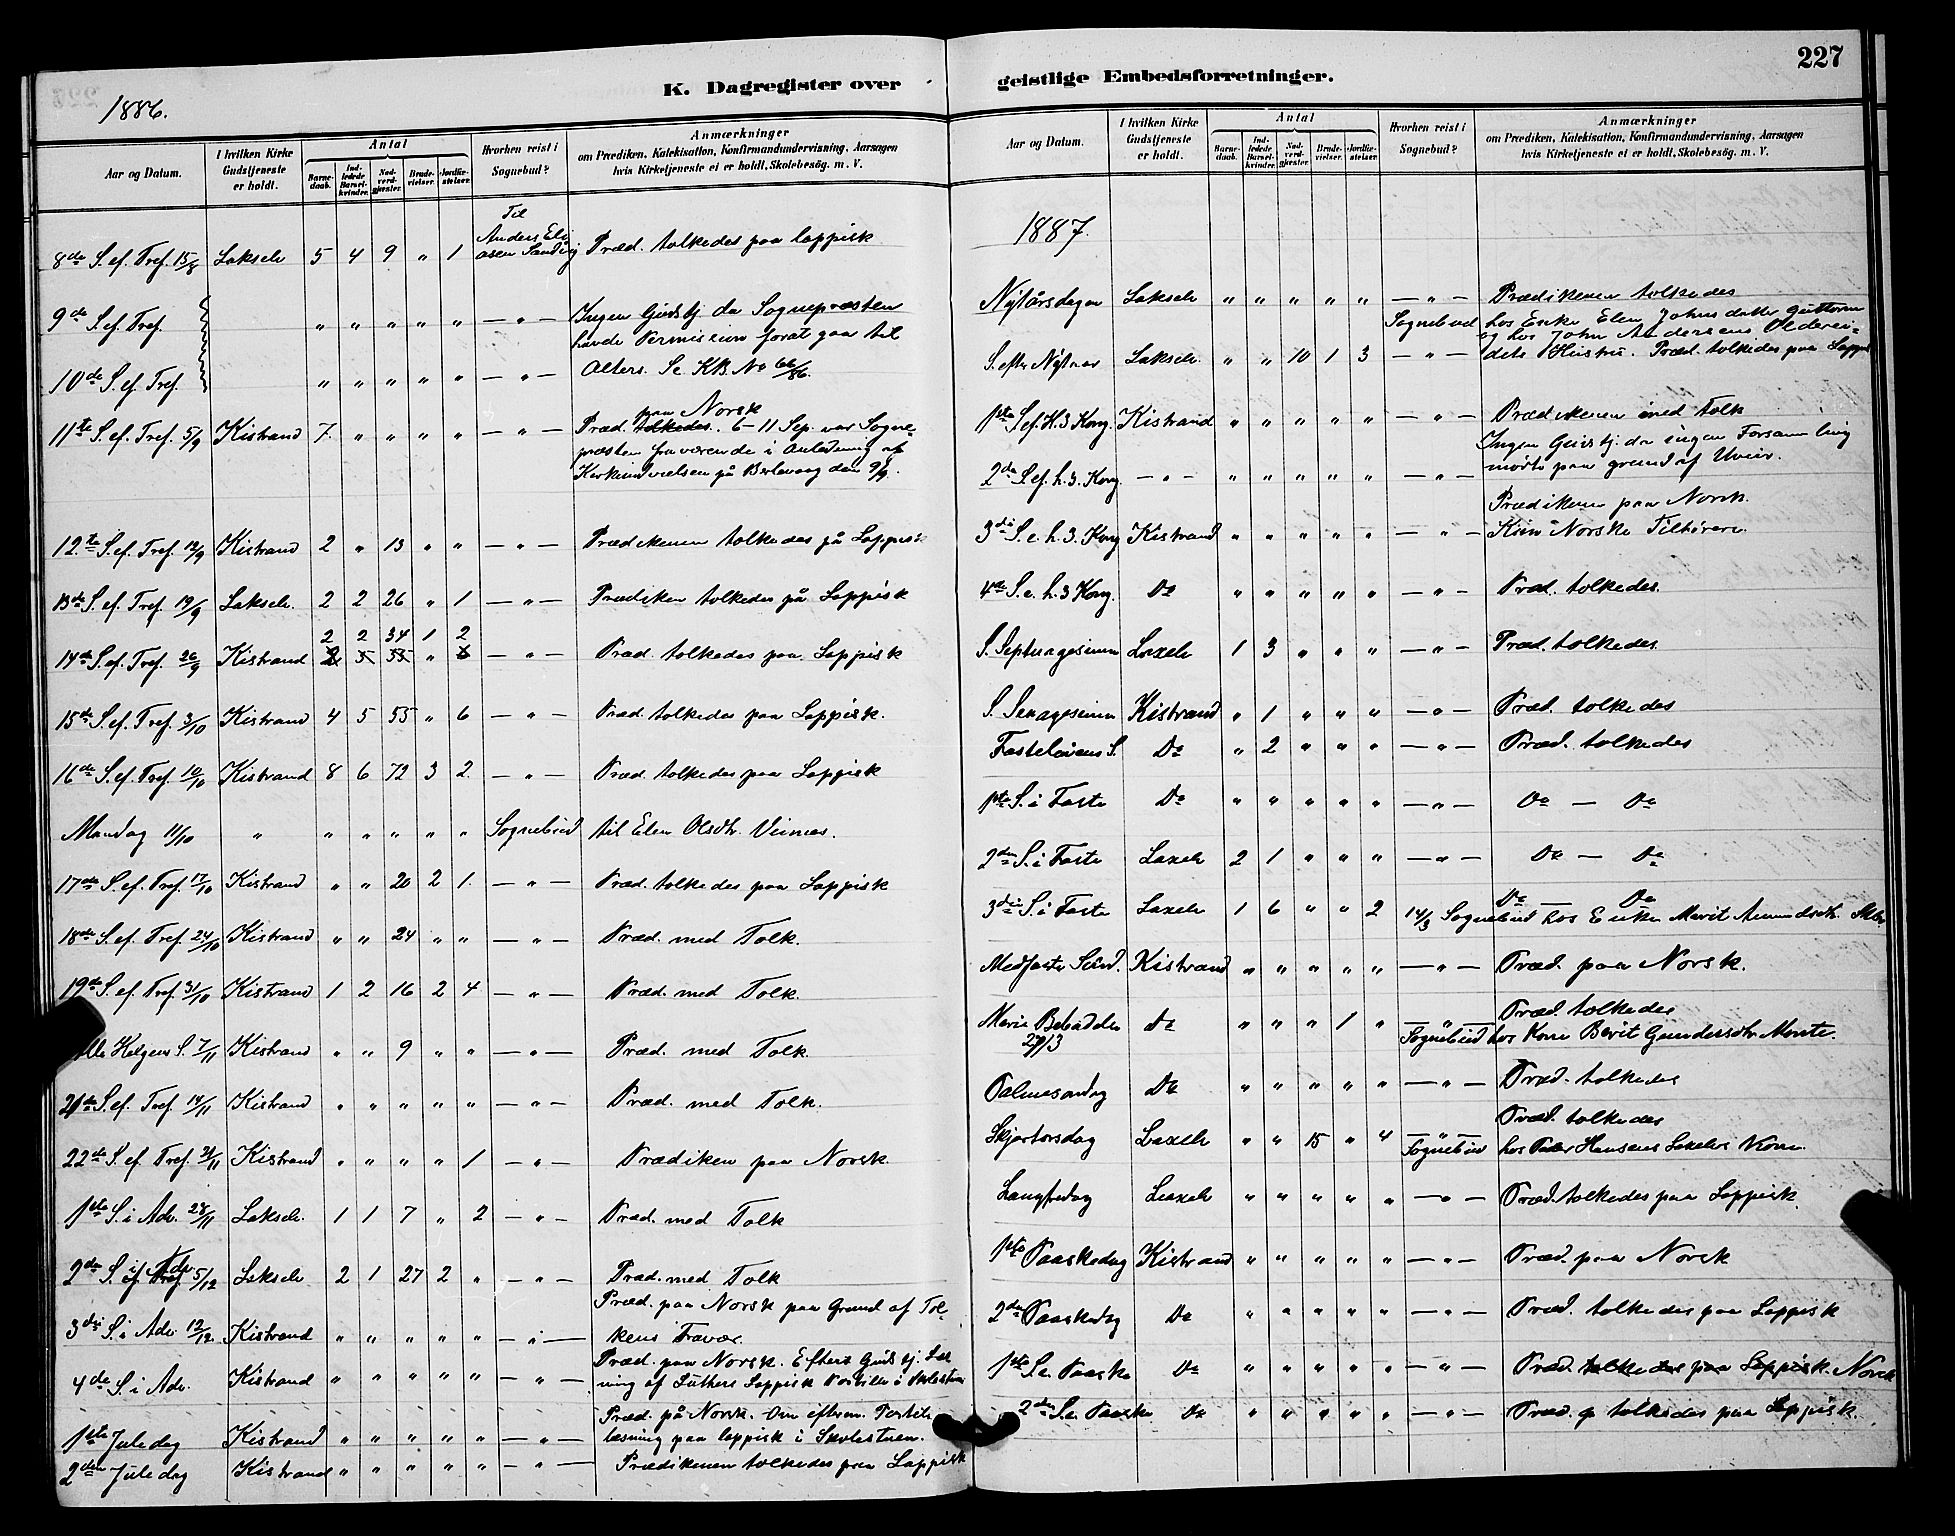 K. Dagregister over geistlige Embedsforretninger.
227
1886.
Aar og Datum. I hvilken Kirke Gudstjeneste er holdt. Antal Barnedaab. Indledede Barselkvinder. Nadverdgjester. Brudevielser. Jordfæstelser. Hvorhen reist i Sognebud? Anmærkninger om Prædiken, Katekisation, Konfirmandundervisning, Aarsagen hvis Kirketjeneste ei er holdt, Skolebesög. m. V.
Til
Anders Eli
8de S. ef. Tref. 15/8 Lakselv 5 4 9 " 1 asen Sandvig Præd. tolkedes paa lappisk
9de S. ef. Tref. " " " " " — " — Ingen Gudstj. da Sognepræsten
havde Permission forat gaa til
10de S. ef. Tref. " " " " " — " — Alters. Se KB. No 66/86.
paa Norsk
11te S. ef. Tref. 5/9 Kistrand 7. " " " " — " — Præd. tolkedes. 6–11 Sep. var Sogne-
præsten fraværende i Anledning af
Kirkeindvielsen på Berlevaag den 9/9.
12te S. ef. Tref. 12/9 Kistrand 2 " 13 " " — " — Prædikenen tolkedes på Lappisk
13de S. ef. Tref. 19/9 Lakselv. 2 2 26 " 1 — " — Prædiken tolkedes på Lappisk
2 2 34 1 2
14de S. ef. Tref. 26/9 Kistrand 5 55 " 6 — " — Præd. tolkedes paa Lappisk
15de S. ef. Tref. 3/10 Kistrand 4 5 55 " 6 — " — Præd. tolkedes paa Lappisk.
16de S. ef. Tref. 10/10 Kistrand 8 6 72 3 2 — " — Præd. tolkedes paa Lappisk
Mandag 11/10 " " " " " " Sognebud til Elen Olsdtr.
17de S. ef. Tref. 17/10 Kistrand " " 20 2 1. — " — Præd. tolkedes paa Lappisk
18de S. ef. Tref. 24/10 Kistrand " " 24 " " — " — Præd. med Tolk.
19de S. ef. Tref. 31/10 Kistrand 1 2 16 2 4 — " — Præd. med Tolk.
Helgens S. 7/11 Kistrand " " 9 " " — " — Præd. med Tolk.
21de S. ef. Tref. 14/11 Kistrand " " " " " — " — Præd. med Tolk.
22de S. ef. Tref. 21/11 Kistrand " " " " 1 — " — Prædiken paa Norsk.
1ste S. i Adv. 28/11 Lakselv. 1 1 7 " 2 — " — Præd. med Tolk
i Adv
2den S. ef Tref 5/12 Lakselv 2 1 27 2 " — " — Præd. med Tolk
Præd. paa Norsk paa Grund af Tol-
3die S. i Adv. 12/12. Kistrand " " " " " — " — kens Fravær.
Præd. paa Norsk. Efter Gudstj. Læs
4de S. i Adv. Kistrand " " " " " — " — ning af Luthers Lappisk Postille i Skolestuen
Præd. på Norsk. Om efterm. Postil-
1ste Juledag Kistrand " " " " " — " — læsning paa lappisk i Skolestuen.
2den Juledag Kistrand " " " " " — " — Prædikenen tolkedes paa Lappisk
Aar og Datum. I hvilken Kirke Gudstjeneste er holdt. Antal Barnedaab. Indledede Barselkvinder. Nadverdgjester. Brudevielser. Jordfæstelser. Hvorhen reist i Sognebud? Anmærkninger om Prædiken, Katekisation, Konfirmandundervisning, Aarsagen hvis Kirketjeneste ei er holdt, Skolebesög. m. V.
1887.
Nytårsdagen Lakselv " " " " " — " — Prædikenen tolkedes
Sognebud hos Enke Elen Johnsdatter Guttorm
og hos John Andersens Olderei-
S. efter Nytaar Lakselv " " 10 1 3 — " — dets Hustru. Præd. tolkedes paa Lappisk
1ste S. ef. H. 3 Kong. Kistrand " " " " " — " — Prædikenen med Tolk
Ingen Gudstj. da ingen Forsamling
2den S. ef. h. 3. Kong. — " — " " " " " — " — mødte paa grund af Uveir.
Prædikenen paa Norsk.
3die S. e. h. 3. Kong Kistrand " " " " " — " — Kun Norske Tilhørere
4de S. e. h. 3 Kong. Do " " " " " — " — Præd. tolkedes.
S. Septuagesima Laxelv 1 3 " " " — " — Præd. tolkedes.
S. Sexagesima Kistrand " 1 " " " — " — Præd. tolkedes
Fastelavens S. Do " 2 " " " Præd. tolkedes
1ste S. i Faste Do " " " " " — " — Do — Do
2den S. i Faste Laxelv 2 1 " " " — " — Do — Do
Do — Do
3die S. i Faste Laxelv 1 6 " " 2 14/3 Sognebud hos Enken Marit Amundsdtr.
Midfaste Sønd. Kistrand " " " " " — " — Præd. paa Norsk.
Præd. tolkedes
Mariæ Bebudelse Do " " " 1 " — " —
Sognebud hos Kone Berit Gundersdtr.
Palmesøndag Do " " " " " — " — Præd. tolkedes
Præd. tolkedes
Skjærtorsdag Laxelv " " 15 " 4 — " —
Sognebud hos Peder Hansens Laxelvs Kone.
Langfredag Laxelv " " " " " — " — Præd. tolkedes paa Lappisk.
1ste Paaskedag Kistrand " " " " " — " — Præd. paa Norsk
2den Paaskedag Do " " " " " — " — Præd. tolkedes paa Lappisk
1ste S. e. Paaske Do " " " " " — " — Præd. tolkedes paa Lappisk. Norsk
2den S. e. Paaske Do " " " " " — " — Præd. tolkedes paa Lappisk.